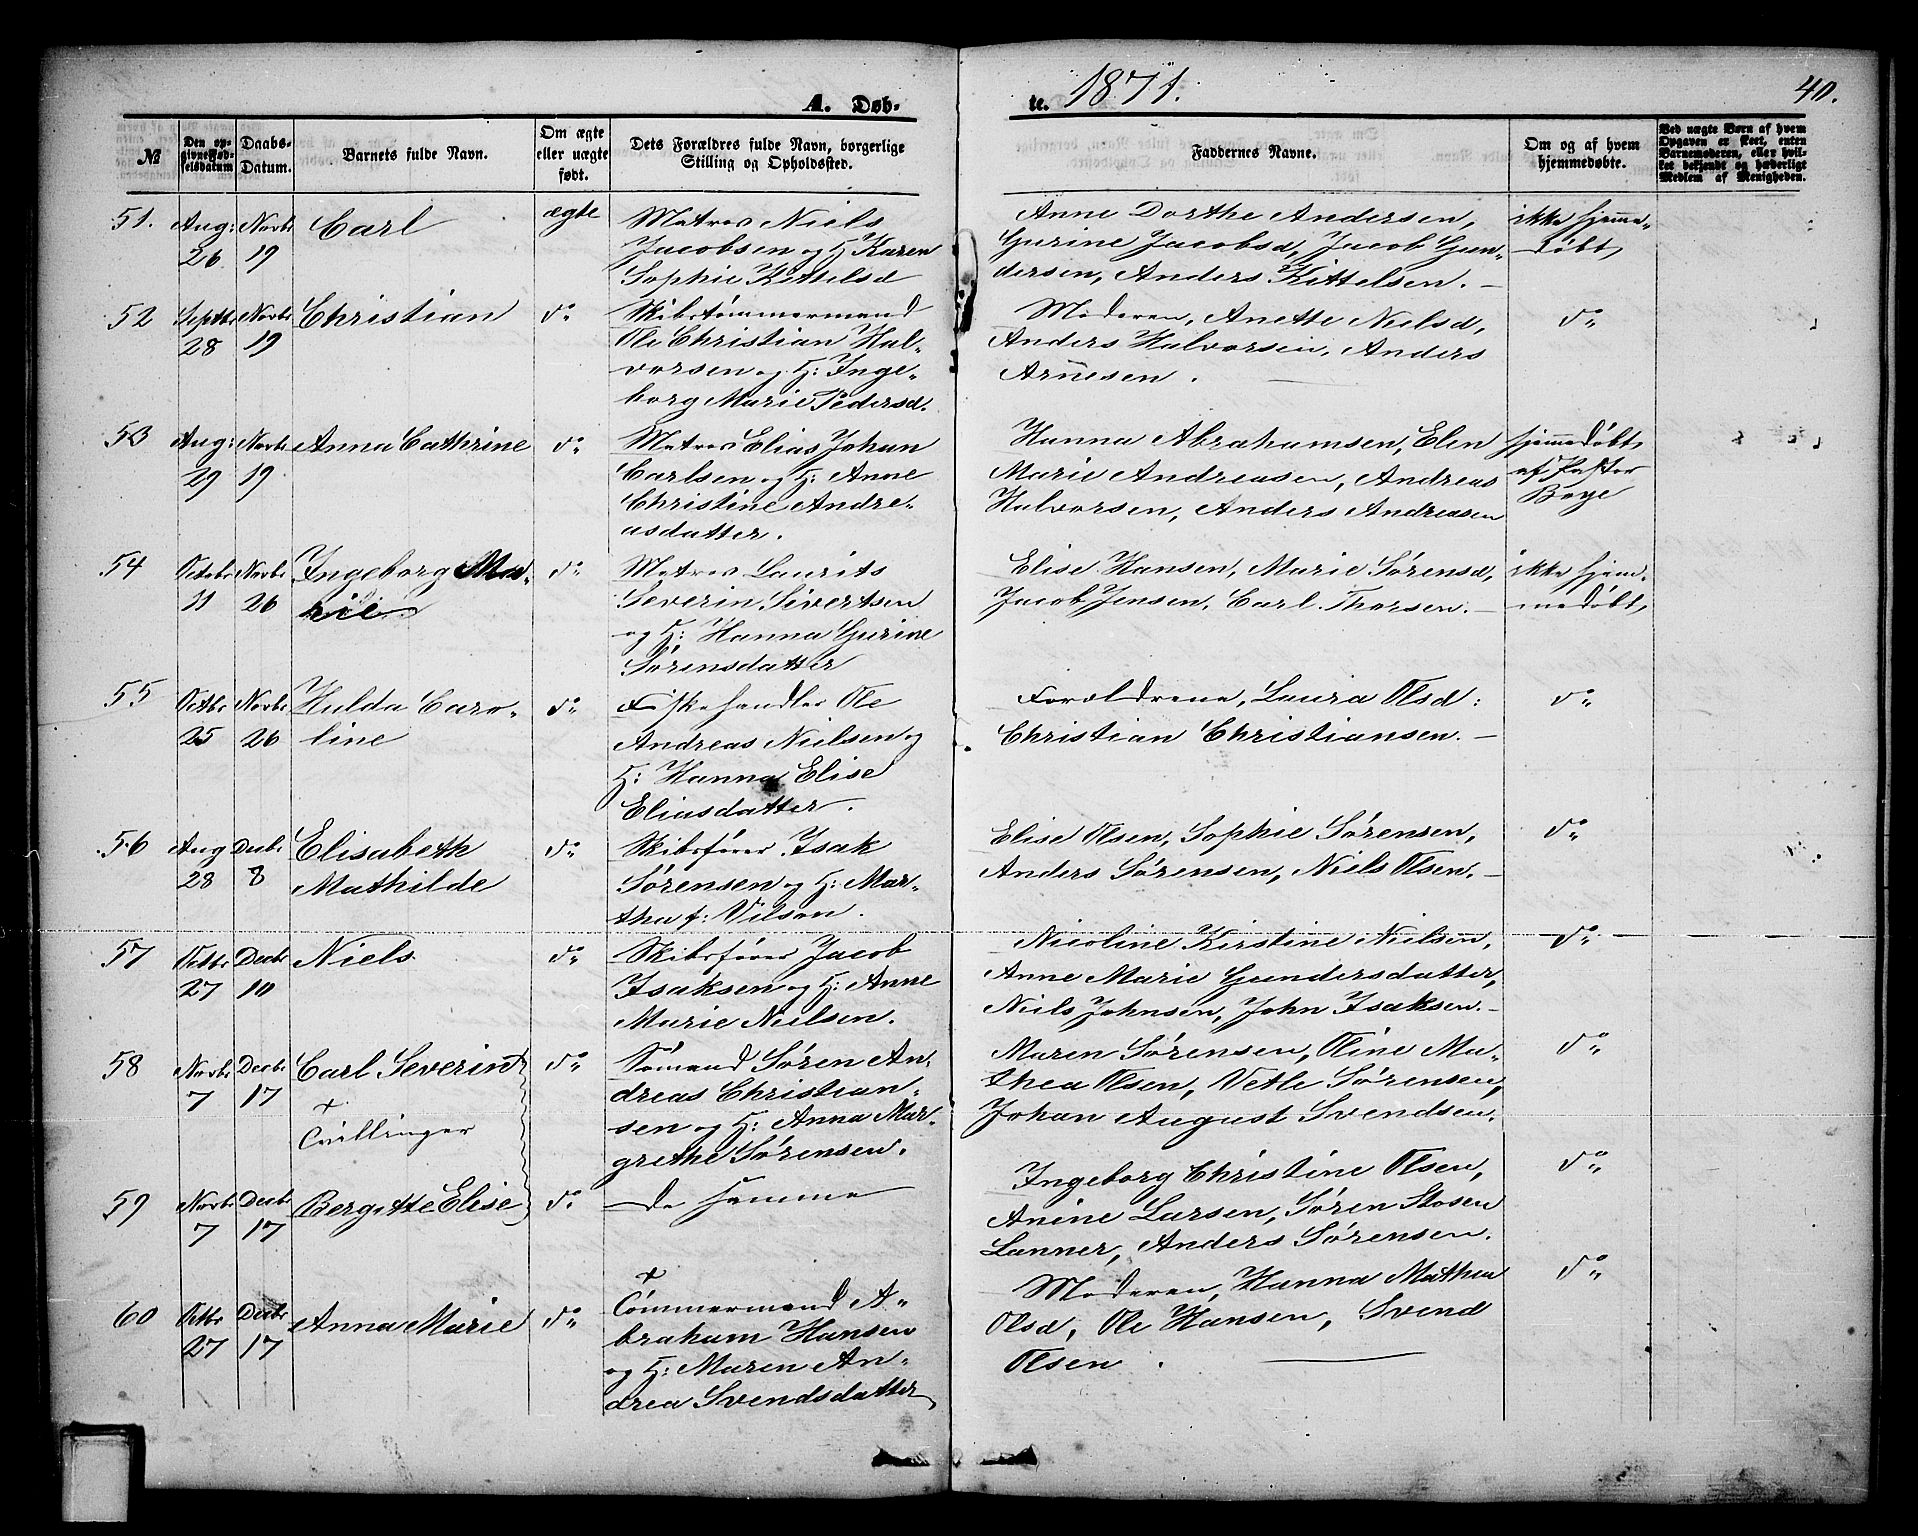 A. Døb-
te. 1871.
40.
№
Den opgivne Fødselsdatum
Daabs-Datum.
Barnets fulde Navn.
Om ægte eller uægte født.
Dets Forældres fulde Navn, borgerlige Stilling og Opholdssted.
Faddernes Navne.
Om og af hvem hjemmedøbte.
Ved uægte Børn af hvem Opgaven er skeet, enten Barnemoderen, eller hvilket bekjendt og hæderligt Medlem af Menigheden.
51. Aug: 26 Novbr 19 Carl ægte
Matros Niels
Jacobsen og H Karen
Sophie Kittelsd
Anne Dorthe Andersen,
Gurine Jacobsd, Jacob Gun-
dersen, Anders Kittelsen. —
ikke hjemme-
døbt
52 Septbr 28 Novbr 19 Christian do
Skibstømmermand
Ole Christian Hal-
vorsen og H: Inge-
borg Marie Pedersd.
Moderen, Anette Nielsd,
Anders Halvorsen, Anders
Arnesen.
do
53 Aug: 29 Novbr 19 Anna Cathrine do
Matros Elias Johan
Carlsen og H: Anne
Christine Andre-
asdatter.
Hanna Abrahamsen, Elen
Marie Andreasen, Andreas
Halvorsen, Anders Andreasen
hjemmedøbt
af Pastor
Boye
54 Octobr 11 Novbr 26 Ingeborg Ma-
rie do
Matros Laurits
Severin Sivertsen
og H: Hanna Gurine
Sørensdatter
Elise Hansen, Marie Sørensd,
Jacob Jensen, Carl Thorsen. —
ikke hjem-
medøbt
55 Octbr 25 Novbr 26 Hulda Caro-
line do
Fiskehandler Ole
Andreas Nielsen og
H: Hanna Elise
Eliasdatter.
Forældrene, Laura Olsd:
Christian Christiansen. —
do
56 Aug 28 Decbr 8 Elisabeth
Mathilde do
Skibsfører Isak
Sørensen og H: Mar-
tha f: Vilson.
Elise Olsen, Sophie Sørensen,
Anders Sørensen, Niels Olsen. —
do
57 Octbr 27 Decbr 10 Niels do
Skibsfører Jacob
Isaksen og H: Anne
Marie Nielsen.
Nicoline Kirstine Nielsen,
Anne Marie Gundersdatter,
Niels Johnsen, John Isaksen. —
do
58 Novbr 7 Decbr 17 Carl Severin do
+
Tvillinger
Sømand Søren An-
dreas Christian-
sen og H: Anna Mar-
grethe Sørensen.
Maren Sørensen, Oline Ma-
thea Olsen, Vetle Sørensen,
Johan August Svendsen.
do
59 Novbr 7 Decbr 17 Bergitte Elise do
De samme
Ingeborg Christine Olsen,
Anine Larsen, Søren Stosen
Lanner, Anders Sørensen.
do
60 Octbr 27 Decbr 17 Anna Marie do
+
Tømmermand A-
braham Hansen
og H: Maren An-
drea Svendsdatter
Moderen, Hanna Mathea
Olsd, Ole Hansen, Svend
Olsen.
do